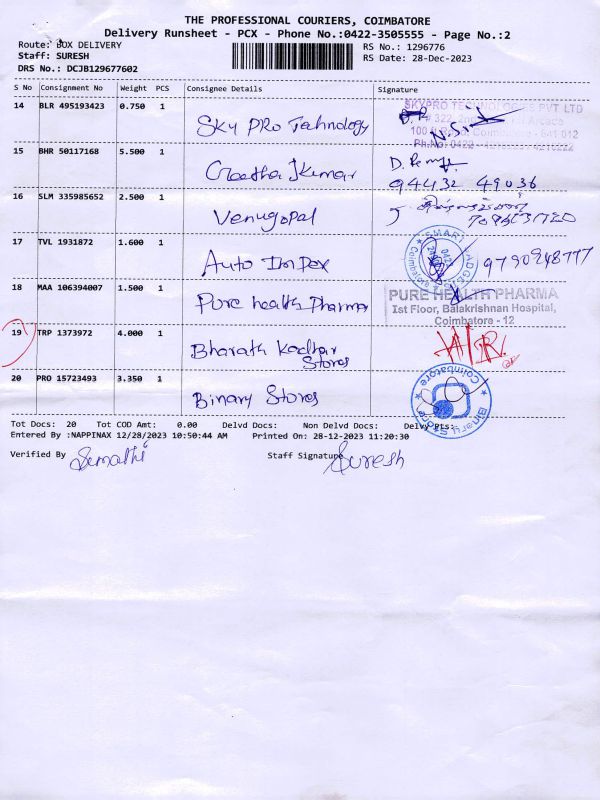 THE PROFESSIONAL COURIERS, COIMBATORE
Delivery Runsheet - PCX - Phone No.:0422-3505555 - Page No.:2
Route: BOX DELIVERY
RS No.: 1296776
Staff: SURESH
RS Date: 28-Dec-2023
DRS No.: DCJB129677602
S No Consignment No Weight PCS Consignee Details Signature
14 BLR 495193423 0.750 1 Sky Pro Technology
SKYPRO TECHNOLOGIES PVT LTD
15 BHR 50117168 5.500 1 Geetha JKumar
94432 49036
16 SLM 335985652 2.500 1 Venugopal
17 TVL 1931872 1.600 1 Auto Impex 9790948777
18 MAA 106394007 1.500 1 Pure health Pharma
PURE HEALTH PHARMA
Ist Floor, Balakrishnan Hospital,
Coimbatore - 12
19 TRP 1373972 4.000 1 Bharath Kadhar
Stores
20 PRO 15723493 3.350 1 Binary Stores
Binary Store Coimbatore
Tot Docs: 20 Tot COD Amt: 0.00 Delvd Docs: Non Delvd Docs: Delvy Pts:
Entered By :NAPPINAX 12/28/2023 10:50:44 AM Printed On: 28-12-2023 11:20:30
Verified By Sumathi Staff Signature Suresh